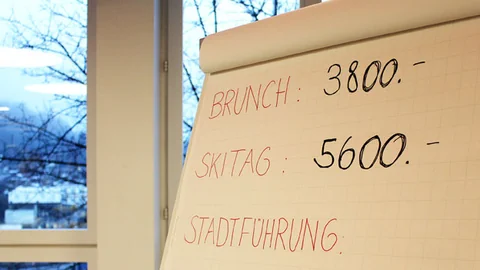 BRUNCH: 3800.-
SKITAG: 5600.-
STADTFÜHRUNG: